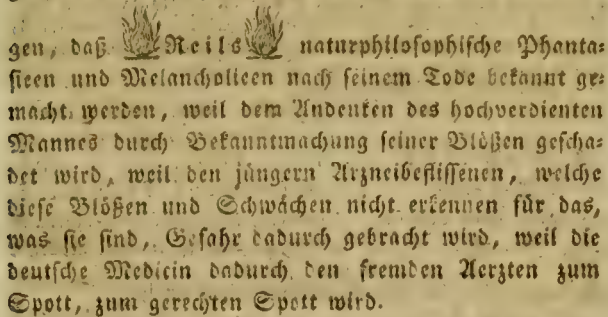 gen, daß Reils naturphilosophische Phanta-
sieen und Melancholieen nach seinem Tode bekannt ge-
macht werden, weil dem Andenken des hochverdienten
Mannes durch Bekanntmachung seiner Blößen gescha-
det wird, weil den jüngern Arzneibeflissenen, welche
diese Blößen und Schwächen nicht erkennen für das,
was sie sind, Gefahr dadurch gebracht wird, weil die
deutsche Medicin dadurch den fremden Aerzten zum
Spott, zum gerechten Spott wird.